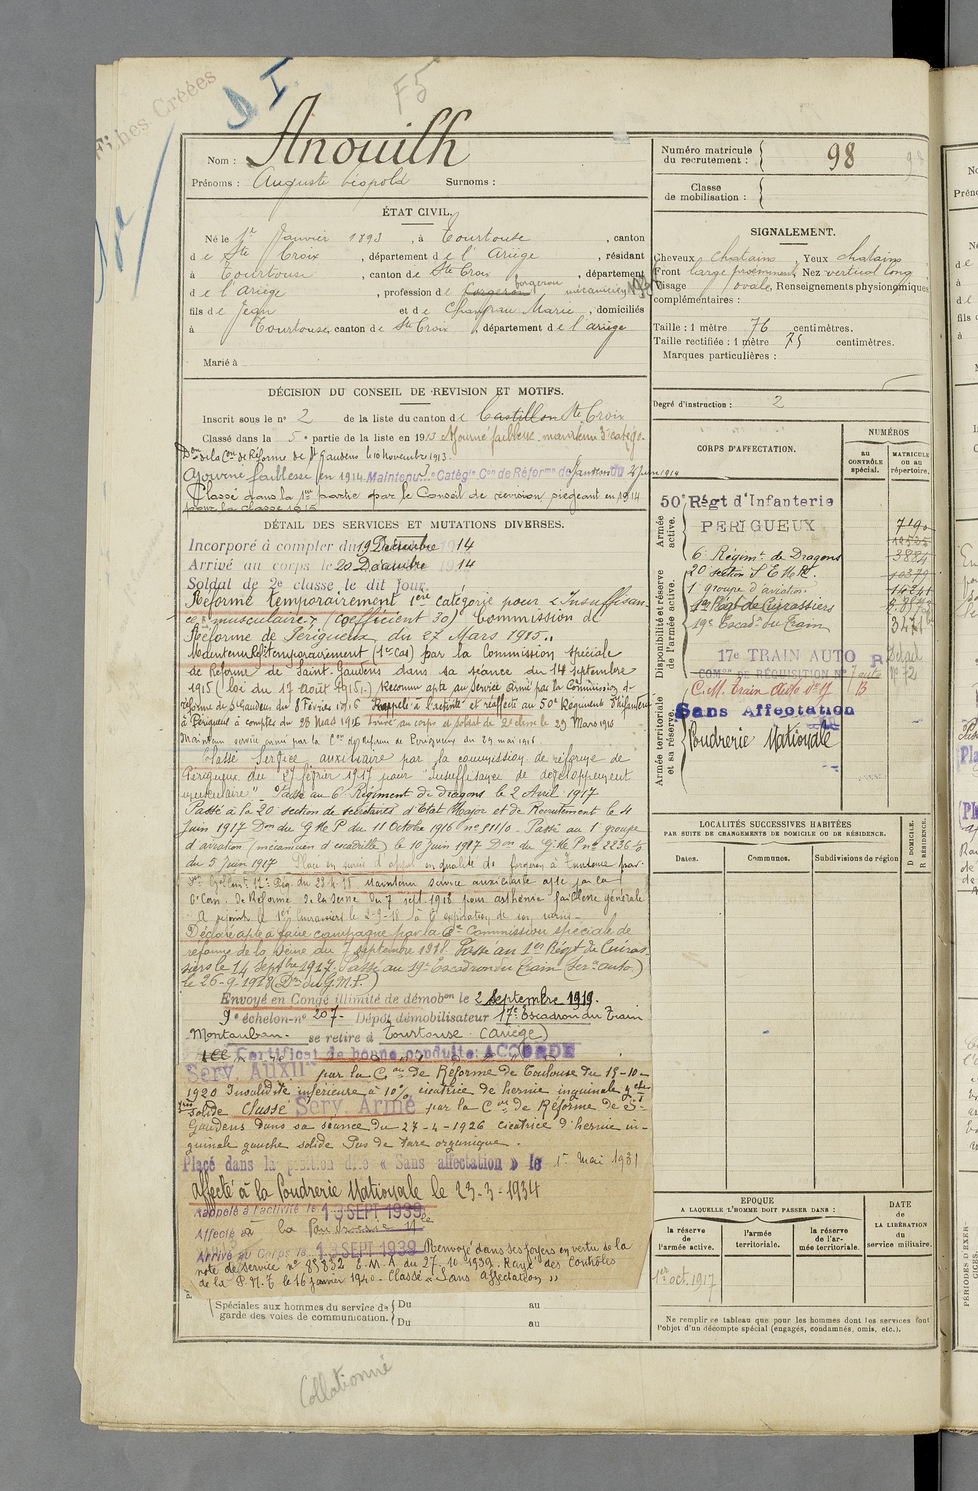 Fiches Créées
D I
F5
Nom : Anouilh
Prénoms : Auguste Léopold Surnoms :
Numéro matricule du recrutement : 98
Classe de mobilisation :
ÉTAT CIVIL.
Né le 1er Janvier 1893, à Tourtouse, canton
de Ste Croix, département de l'Ariège, résidant
à Tourtouse, canton de Ste Croix, département
de l'Ariège, profession de Forgeron forgeron mécanicien
fils de Jean et de Marie, domiciliés
à Tourtouse, canton de Ste Croix, département de l'ariège
Marié à
SIGNALEMENT.
Cheveux chatains, Yeux chatains
Front large proéminent, Nez vertical long
Visage ovale, Renseignements physionomiques
complémentaires :
Taille : 1 mètre 76 centimètres.
Taille rectifiée : 1 mètre 75 centimètres.
Marques particulières :
Degré d'instruction : 2
DÉCISION DU CONSEIL DE REVISION ET MOTIFS.
Inscrit sous le n° 2 de la liste du canton de Castillon Ste Croix
Classé dans la 5e partie de la liste en 1913 Ajourné faiblesse
Don de la Con de Réforme de St Gaudens le 10 novembre 1913.
Ajourné faiblesse en 1914. Maintenu Catégie Con de Réforme de St Gaudens du 4 juin 1914
Classé dans la 1re partie par le Conseil de révision siégeant en 1914
pour la classe 1915
DÉTAIL DES SERVICES ET MUTATIONS DIVERSES.
Incorporé à compter du 19 Décembre 1914
Arrivé au corps le 20 Décembre 1914
Soldat de 2e classe le dit jour.
Réformé temporairement 1ère catégorie pour "Insuffisan-
ce musculaire" (coefficient 50) Commission de
Réforme de Périgueux du 27 Mars 1915.
Maintenu Réfé temporairement (1er Cas) par la Commission spéciale
de Réforme de Saint-Gaudens dans sa séance du 14 Septembre
1915 (loi du 17 août 1915.) Reconnu apte au service armé par la Commission de
réforme de St Gaudens du 8 Février 1916 Rappelé à l'activité et réaffecté au 50e Régiment d'Infanterie
à Périgueux à compter du 28 Mars 1916 Arrivé au corps et soldat de 2e classe le 29 Mars 1916
Maintenu service armé par la Con de Réforme de Périgueux du 29 mai 1916
Classé Service auxiliaire par la commission de réforme de
Périgueux du 27 février 1917 pour "insuffisance de développement
musculaire" Passé au 6e Régiment de dragons le 2 Avril 1917
Passé à la 20 section de secrétaires d'Etat Major et de Recrutement le 4
Juin 1917 Don du G Me P du 11 Octobre 1916 n° Passé au 1 groupe
d'aviation (mécanicien d'escadrille) le 10 Juin 1917 Don du G. Me P n° 2236 1/3
du 5 Juin 1917 Placé en sursis d'appel en qualité de forgeron à Tourtouse par
Don 12e Rég. du Maintenu service auxiliaire affe par la
6e Com. de Réforme de la Seine du 7 sept. 1918 pour asthénie faiblesse générale
A rejoint le 1er Cuirassiers le 2-9-18 à l'expiration de son sursis
Déclaré apte à faire campagne par la 6e Commission spéciale de
réforme de la Seine du 7 septembre 1918. Passé au 1er Régt de Cuiras-
siers le 14 septbre 1917. Passé au 19e Escadron du train (Serv. auto)
le 26-9-1918 (Don du G.M.P.)
Envoyé en Congé illimité de démobon le 2 Septembre 1919.
9e échelon - n° 207 - Dépôt démobilisateur 17e Escadron du Train
Montauban. se retire à Tourtouse (Ariège)
Certificat de bonne conduite ACCORDÉ
Serv. AUXIre par la Con de Réforme de Toulouse du 15-10-
1920 Invalidité inférieure à 10% cicatrice de hernie inguinale gche
très solide classé Serv. Armé par la Con de Réforme de St-
Gaudens dans sa séance du 27-4-1926 cicatrice d'hernie in-
guinale gauche solide Pas de tare organique.
Placé dans la position dite « Sans affectation » le 1er Mai 1931
Affecté à la Poudrerie Nationale le 23-3-1934
Rappelé à l'activité le 13 SEPT 1939
Affecté à la Poudrerie Nle
Arrivé au Corps le 13 SEPT 1939 Renvoyé dans ses foyers en vertu de la
note de service n° 83852 E.M.A du 27.10.1939. Rayé des Contrôles
de la P.N.T. le 16 janvier 1940. Classé "Sans affectation"
Spéciales aux hommes du service de garde des voies de communication.
Du au
Du au
CORPS D'AFFECTATION.
NUMÉROS
AU CONTRÔLE spécial.
MATRICULE ou au répertoire.
Armée active.
50e Régt d'Infanterie
PERIGUEUX
Disponibilité et réserve de l'armée active.
6e Régimt de Dragons 3884
20 section S E M R. 10379
1 groupe d'aviation 14241
1er Régt de Cuirassiers
19e Escadn du Train 3471
17e TRAIN AUTO R
COMon DE RÉQUISITION N°
C.M. train Auto n° 17 B
Armée territoriale et sa réserve.
Sans Affectation
Poudrerie Nationale
LOCALITÉS SUCCESSIVES HABITÉES
PAR SUITE DE CHANGEMENTS DE DOMICILE OU DE RÉSIDENCE.
Dates. Communes. Subdivisions de région
D DOMICILE.
R RÉSIDENCE.
EPOQUE
A LAQUELLE L'HOMME DOIT PASSER DANS :
la réserve de l'armée active.
l'armée territoriale.
la réserve de l'armée territoriale.
DATE de LA LIBÉRATION du service militaire.
1er oct. 1917
Ne remplir ce tableau que pour les hommes dont les services font
l'objet d'un décompte spécial (engagés, condamnés, omis, etc.).
Collationné
PÉRIODES D'EXERCICES.